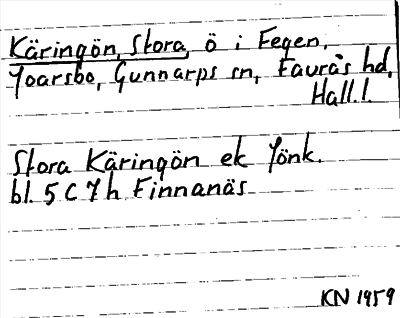 Käringön, Stora, ö i Fegen,
Yoarsbo, Gunnarps sn, Faurås hd,
Hall.l.
Stora Käringön ek Jönk.
bl. 5 C 7 h Finnanäs
KN 1959